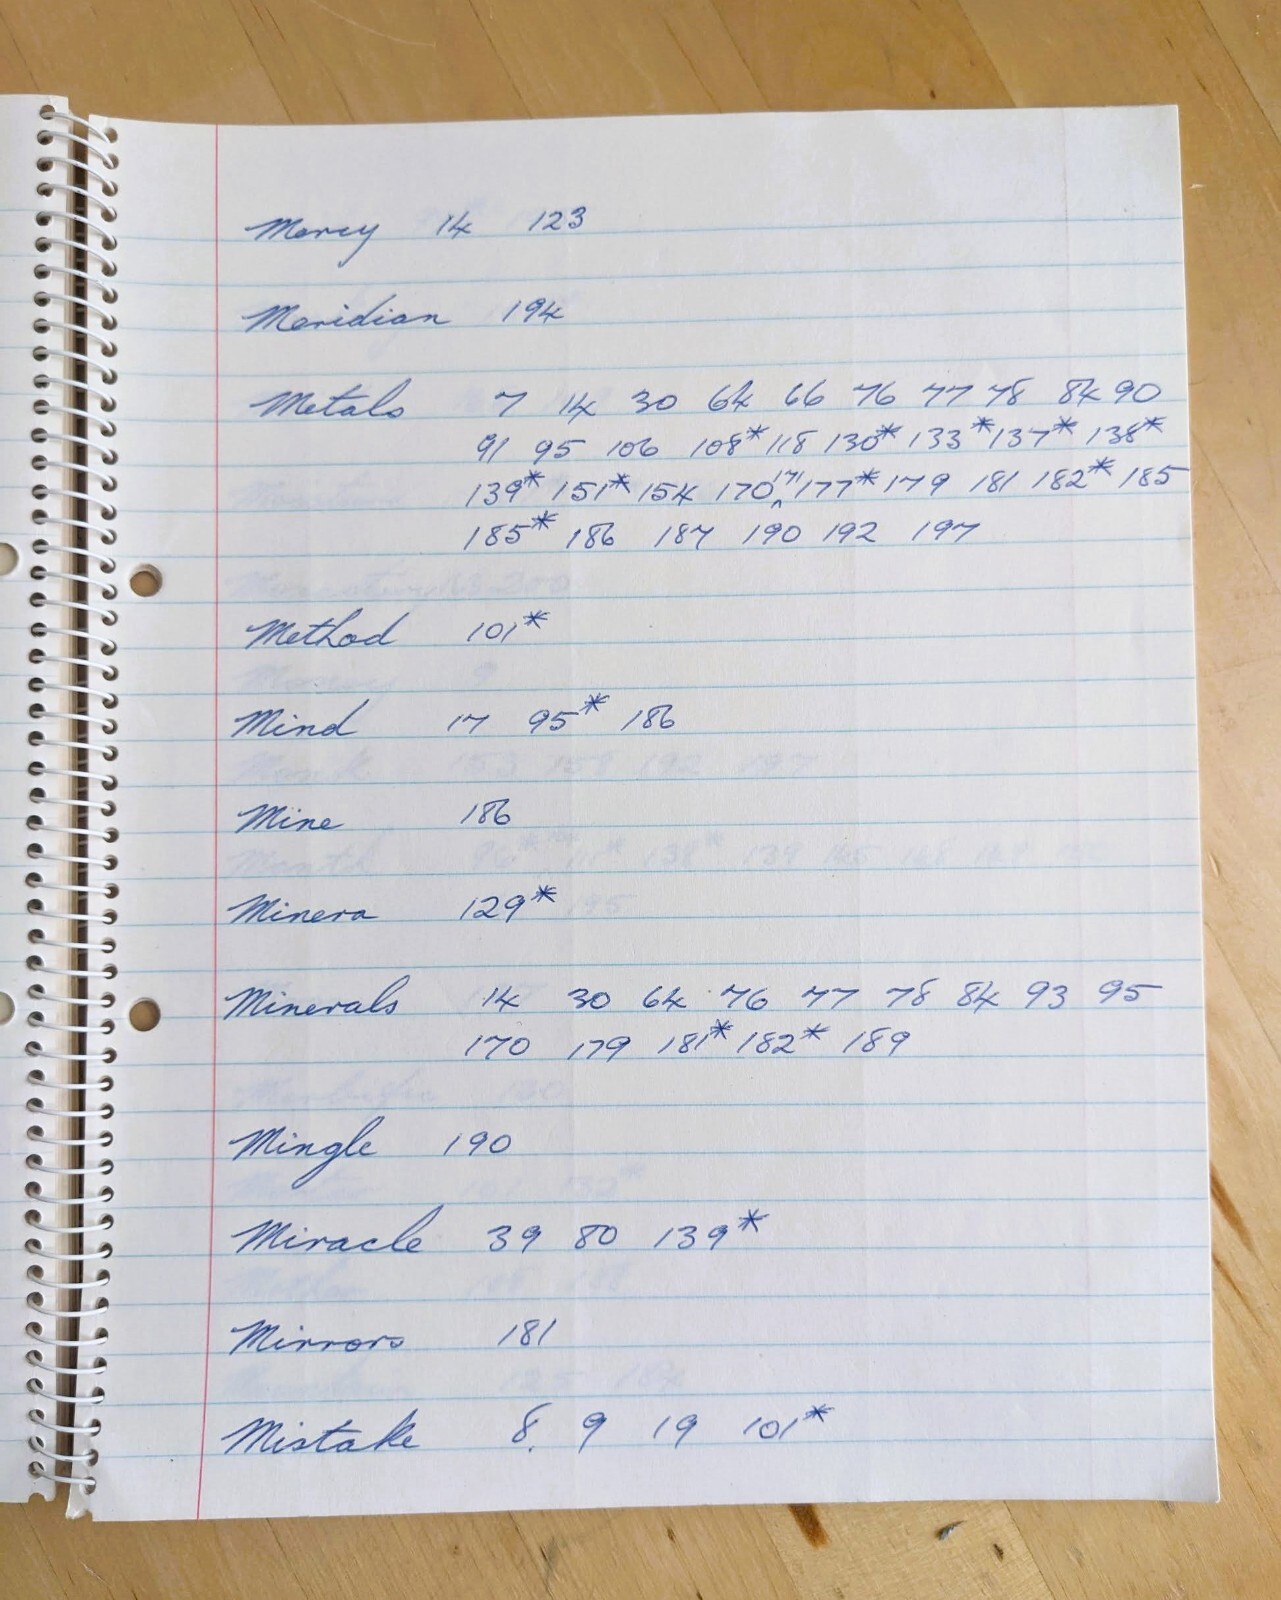 Mercy 14 123
Meridian 194
Metals 7 14 30 64 66 76 77 78 84 90
91 95 106 108* 118 130* 133* 137* 138*
139* 151* 154 170 171 177* 179 181 182* 185
185* 186 187 190 192 197
Method 101*
Mind 17 95* 186
Mine 186
Minera 129*
Minerals 14 30 64 76 77 78 84 93 95
170 179 181* 182* 189
Mingle 190
Miracle 39 80 139*
Mirrors 181
Mistake 8. 9 19 101*